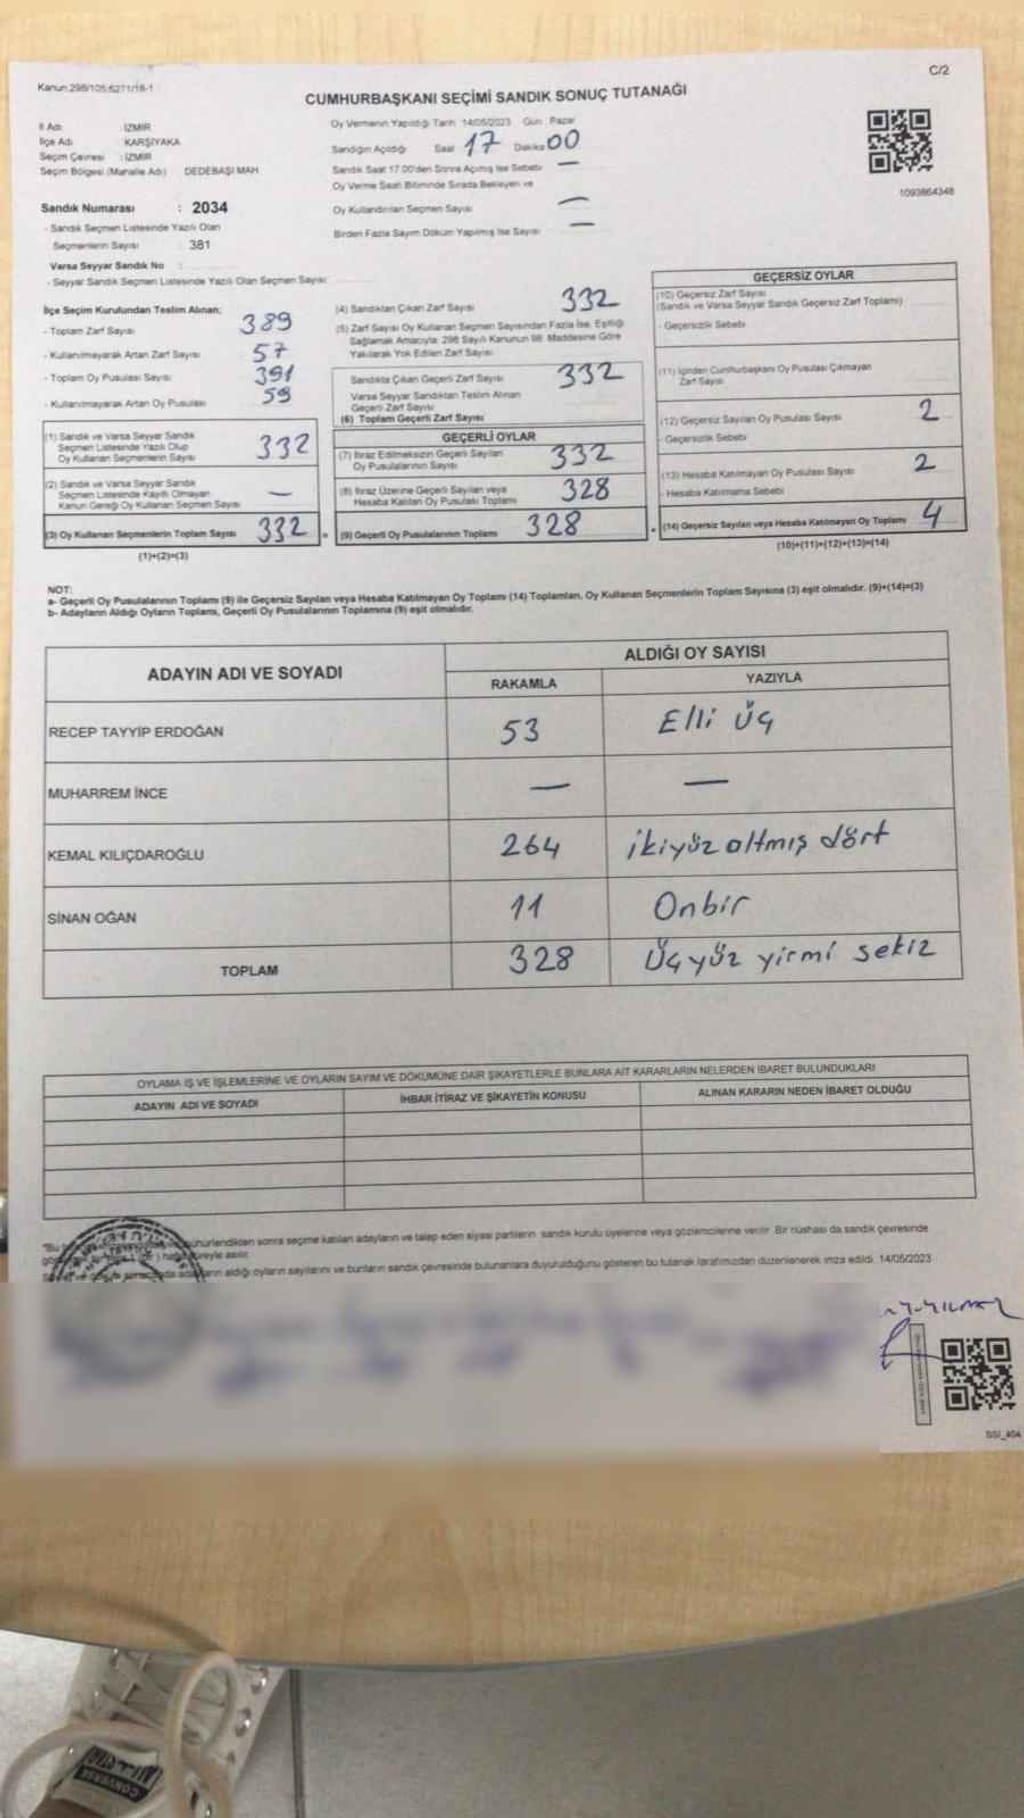 Kanun:298/105;6271/18-1
C/2
CUMHURBAŞKANI SEÇİMİ SANDIK SONUÇ TUTANAĞI
İl Adı : İZMİR
İlçe Adı : KARŞIYAKA
Seçim Çevresi : İZMİR
Seçim Bölgesi (Mahalle Adı) DEDEBAŞI MAH
Oy Vermenin Yapıldığı Tarih 14/05/2023 Gün : Pazar
Sandığın Açıldığı Saat 17 Dakika 00
Sandık Saat 17.00'den Sonra Açılmış İse Sebebi —
Oy Verme Saati Bitiminde Sırada Bekleyen ve
Oy Kullandırılan Seçmen Sayısı —
Birden Fazla Sayım Döküm Yapılmış İse Sayısı —
1093864348
Sandık Numarası : 2034
- Sandık Seçmen Listesinde Yazılı Olan
Seçmenlerin Sayısı : 381
Varsa Seyyar Sandık No :
- Seyyar Sandık Seçmen Listesinde Yazılı Olan Seçmen Sayısı
İlçe Seçim Kurulundan Teslim Alınan;
- Toplam Zarf Sayısı 389
- Kullanılmayarak Artan Zarf Sayısı 57
- Toplam Oy Pusulası Sayısı 391
- Kullanılmayarak Artan Oy Pusulası 59
(1) Sandık ve Varsa Seyyar Sandık
Seçmen Listesinde Yazılı Olup
Oy Kullanan Seçmenlerin Sayısı 332
(2) Sandık ve Varsa Seyyar Sandık
Seçmen Listesinde Kayıtlı Olmayan
Kanun Gereği Oy Kullanan Seçmen Sayısı —
(3) Oy Kullanan Seçmenlerin Toplam Sayısı 332
(1)+(2)=(3)
(4) Sandıktan Çıkan Zarf Sayısı 332
(5) Zarf Sayısı Oy Kullanan Seçmen Sayısından Fazla İse, Eşitliği
Sağlamak Amacıyla 298 Sayılı Kanunun 98. Maddesine Göre
Yakılarak Yok Edilen Zarf Sayısı
Sandıkta Çıkan Geçerli Zarf Sayısı 332
Varsa Seyyar Sandıktan Teslim Alınan
Geçerli Zarf Sayısı
(6) Toplam Geçerli Zarf Sayısı
GEÇERLİ OYLAR
(7) İtiraz Edilmeksizin Geçerli Sayılan
Oy Pusulalarının Sayısı 332
(8) İtiraz Üzerine Geçerli Sayılan veya
Hesaba Katılan Oy Pusulası Toplamı 328
(9) Geçerli Oy Pusulalarının Toplamı 328
GEÇERSİZ OYLAR
(10) Geçersiz Zarf Sayısı
(Sandık ve Varsa Seyyar Sandık Geçersiz Zarf Toplamı)
- Geçersizlik Sebebi
(11) İçinden Cumhurbaşkanı Oy Pusulası Çıkmayan
Zarf Sayısı
(12) Geçersiz Sayılan Oy Pusulası Sayısı 2
- Geçersizlik Sebebi
(13) Hesaba Katılmayan Oy Pusulası Sayısı 2
- Hesaba Katılmama Sebebi
(14) Geçersiz Sayılan veya Hesaba Katılmayan Oy Toplamı 4
(10)+(11)+(12)+(13)=(14)
NOT:
a- Geçerli Oy Pusulalarının Toplamı (9) ile Geçersiz Sayılan veya Hesaba Katılmayan Oy Toplamı (14) Toplamları, Oy Kullanan Seçmenlerin Toplam Sayısına (3) eşit olmalıdır. (9)+(14)=(3)
b- Adayların Aldığı Oyların Toplamı, Geçerli Oy Pusulalarının Toplamına (9) eşit olmalıdır.
ADAYIN ADI VE SOYADI ALDIĞI OY SAYISI
RAKAMLA YAZIYLA
RECEP TAYYİP ERDOĞAN 53 Elli üç
MUHARREM İNCE — —
KEMAL KILIÇDAROĞLU 264 ikiyüz altmış dört
SİNAN OĞAN 11 Onbir
TOPLAM 328 Üçyüz yirmi sekiz
OYLAMA İŞ VE İŞLEMLERİNE VE OYLARIN SAYIM VE DÖKÜMÜNE DAİR ŞİKAYETLERLE BUNLARA AİT KARARLARIN NELERDEN İBARET BULUNDUKLARI
ADAYIN ADI VE SOYADI İHBAR İTİRAZ VE ŞİKAYETİN KONUSU ALINAN KARARIN NEDEN İBARET OLDUĞU
sonra seçime katılan adayların ve talep eden siyasi partilerin sandık kurulu üyelerine veya gözlemcilerine verilir. Bir nüshası da sandık çevresinde
asılır.
aldığı oyların sayılarını ve bunların sandık çevresinde bulunanlara duyurulduğunu gösteren bu tutanak tarafımızdan düzenlenerek imza edildi. 14/05/2023
CONVERSE